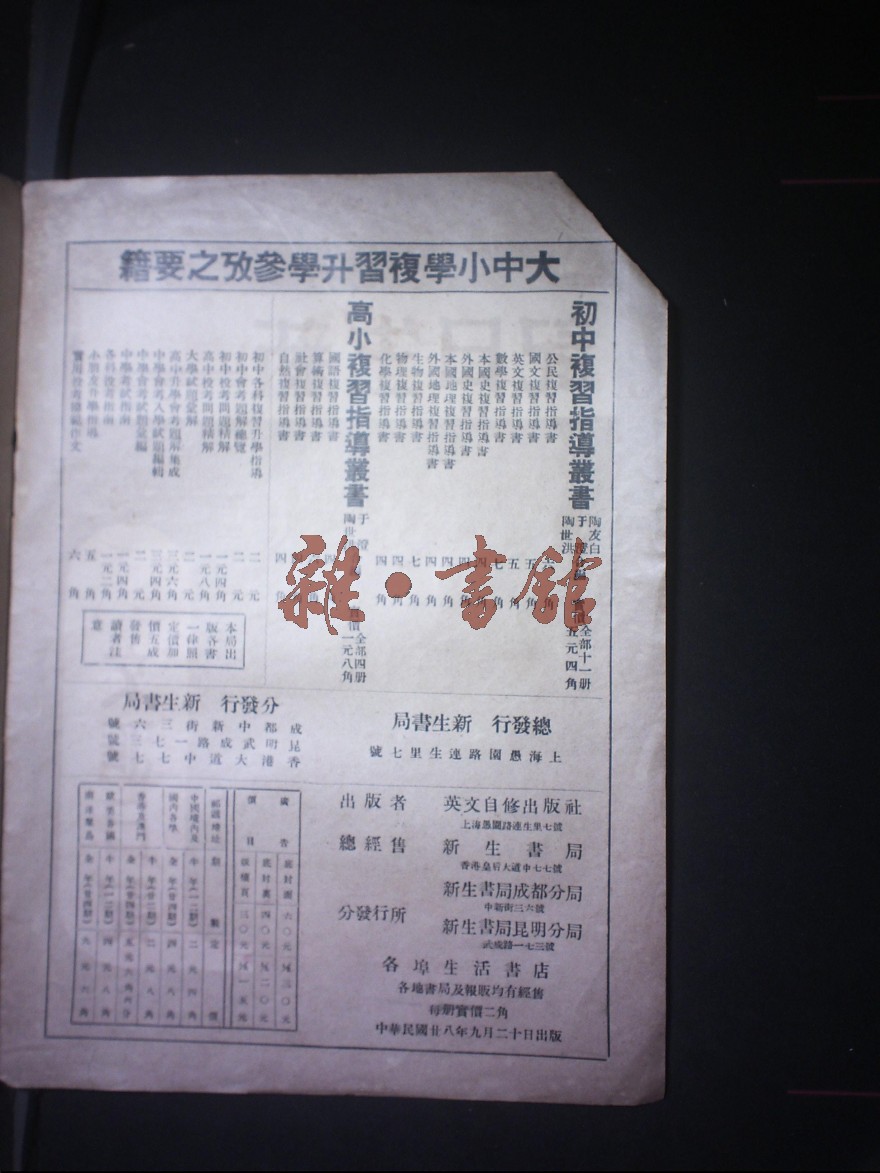 大中小學複習升學參攷之要籍
初中複習指導叢書
陶友白
于澄
陶世洪
合編
實價
全部十一册
五元四角
公民複習指導書
角
國文複習指導書 五角
英文複習指導書 五角
數學複習指導書 七角
本國史複習指導書 四角
外國史複習指導書 四角
本國地理複習指導書 四角
外國地理複習指導書 四角
生物複習指導書 七角
物理複習指導書 四角
化學複習指導書 四角
高小複習指導叢書
于澄
陶世
實價
全部四册
一元八角
國語複習指導書
算術複習指導書
社會複習指導書
自然複習指導書 四角
初中各科複習升學指導 二元
初中會考題解總覽 二元
初中投考問題精解 一元四角
高中投考問題精解 一元八角
大學試題彙解 二元
高中升學會考題解集成 三元六角
中學會考入學試題編輯 三元四角
中學會考試題彙編 二元
中學考試指南 一元四角
各科投考指南 一元二角
小學及升學指導 五角
六角
本局出
版各書
一律照
定價加
價五成
發售
讀者注
意
總發行 新生書局
上海愚園路連生里七號
分發行 新生書局
成都中新街三六號
昆明武成路一七三號
香港大道中七七號
出版者 英文自修出版社
上海愚園路連生里七號
總經售 新生書局
香港皇后大道中七七號
分發行所
新生書局成都分局
中新街三六號
新生書局昆明分局
武成路一七三號
各埠生活書店
各地書局及報販均有經售
每册實價二角
中華民國廿八年九月二十日出版
廣告價目
底封面 六〇元 ½三〇元
底封裏 四〇元 ½二〇元
三〇元 ½一五元
郵遞地址 期數 定價
中國境內及
國內各學
半年(一二期) 二元四角
全年(廿四期) 四元八角
香港及澳門
半年(一二期) 二元八角
全年(廿四期) 五元六角
歐美各國
半年(一二期) 四元八角
全年(廿四期) 九元六角
雜·書館